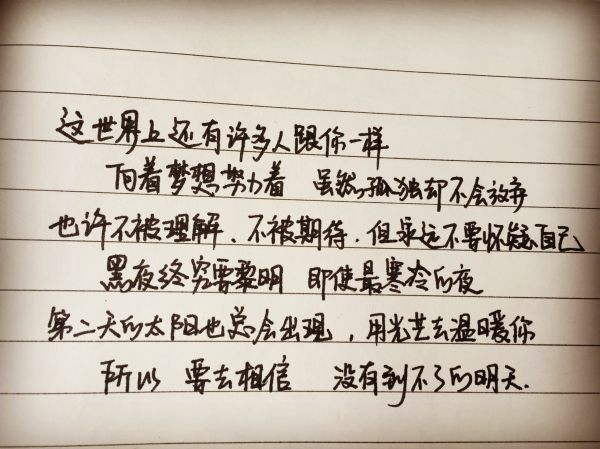 这世界上还有许多人跟你一样
向着梦想努力着 虽然孤独却不会放弃
也许不被理解、不被期待，但永远不要怀疑自己
黑夜终究要黎明 即使最寒冷的夜
第二天的太阳也总会出现，用光芒去温暖你
所以 要去相信 没有到不了的明天.